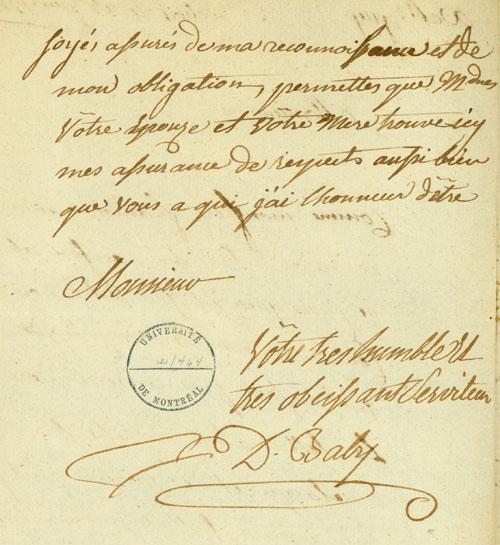 soyés assurés de ma reconnoissance et de
mon obligation, permettes que Mdes
Vôtre Epouze et Vôtre Mere trouve icy
mes assurance de respects aussi bien
que vous a qui j'ai l'honneur d'être
Monsieur
UNIVERSITÉ
1464
DE MONTRÉAL
Vôtre tres humble Et
tres obeissant Serviteur
D. Baby